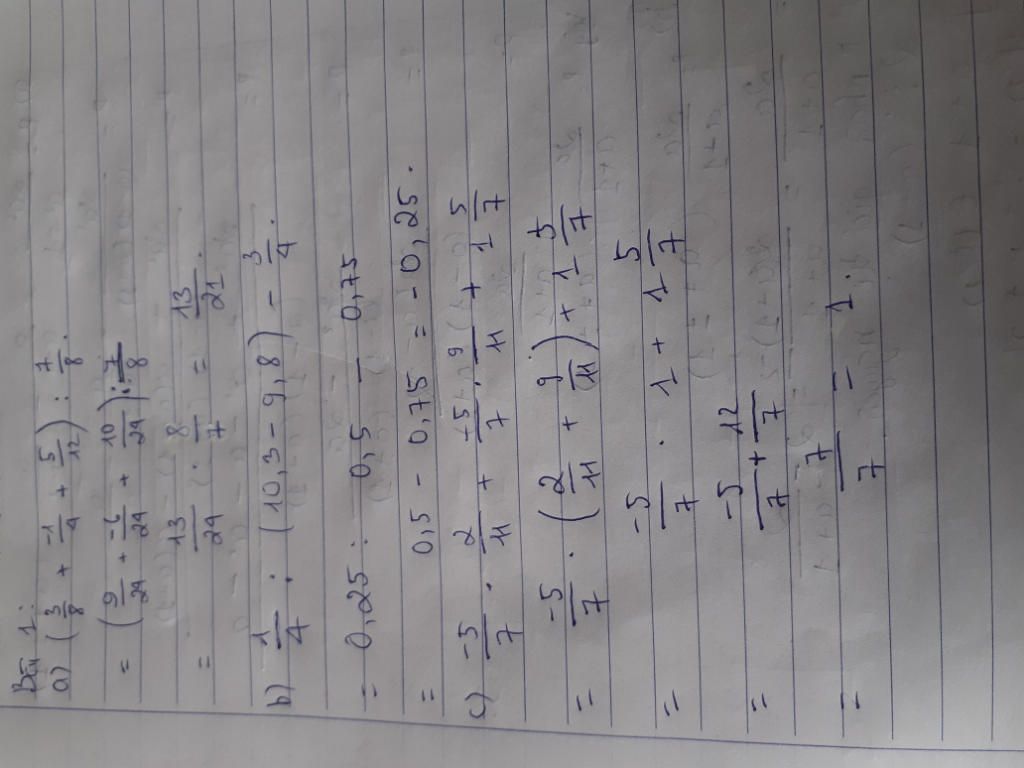 Bài 1:
a) (3/8 + -1/4 + 5/12) : 7/8.
= (9/24 + -6/24 + 10/24) : 7/8
= 13/24 . 8/7 = 13/21.
b) 1/4 : (10,3 - 9,8) - 3/4.
= 0,25 : 0,5 - 0,75
= 0,5 - 0,75 = -0,25.
c) -5/7 . 2/11 + -5/7 . 9/11 + 1 5/7
= -5/7 . (2/11 + 9/11) + 1 5/7
= -5/7 . 1 + 1 5/7
= -5/7 + 12/7
= 7/7 = 1.